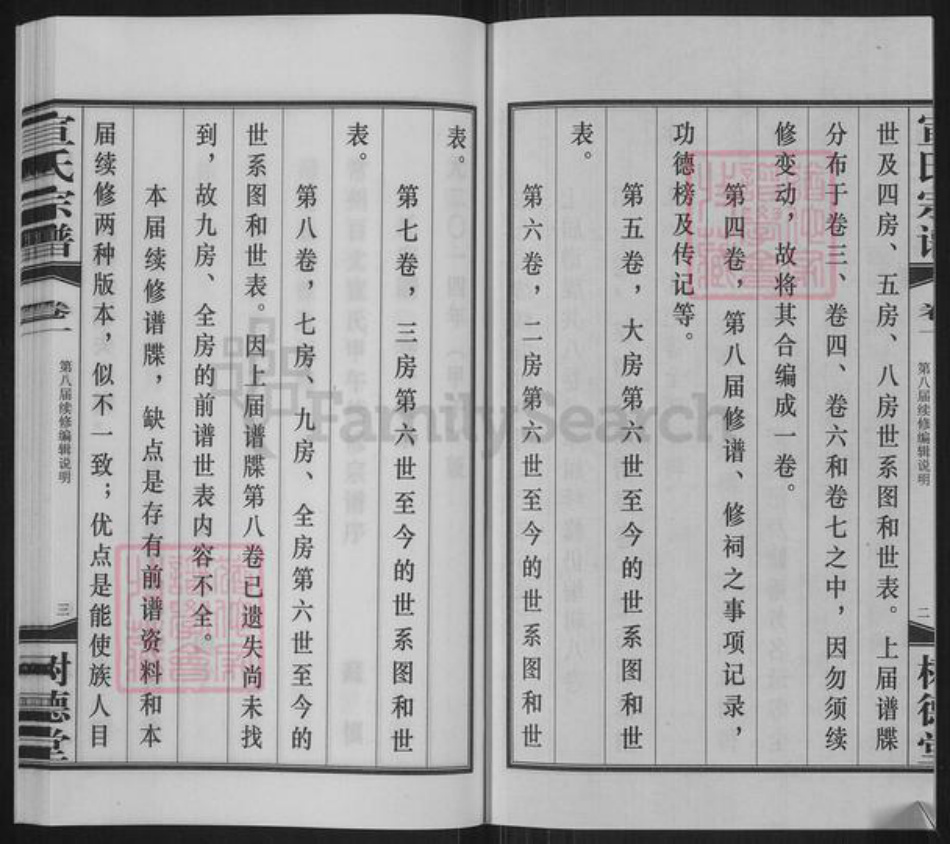 世及四房、五房、八房世系图和世表。上届谱牒
分布于卷三、卷四、卷六和卷七之中，因勿须续
修变动，故将其合编成一卷。
第四卷，第八届修谱、修祠之事项记录，
功德榜及传记等。
第五卷，大房第六世至今的世系图和世
表。
第六卷，二房第六世至今的世系图和世
表。
第七卷，三房第六世至今的世系图和世
表。
第八卷，七房、九房、全房第六世至今的
世系图和世表。因上届谱牒第八卷已遗失尚未找
到，故九房、全房的前谱世表内容不全。
本届续修谱牒，缺点是存有前谱资料和本
届续修两种版本，似不一致；优点是能使族人目
宣氏宗谱
卷一
第八届续修编辑说明
二
树德堂
宣氏宗谱
卷一
第八届续修编辑说明
三
树德堂
FamilySearch